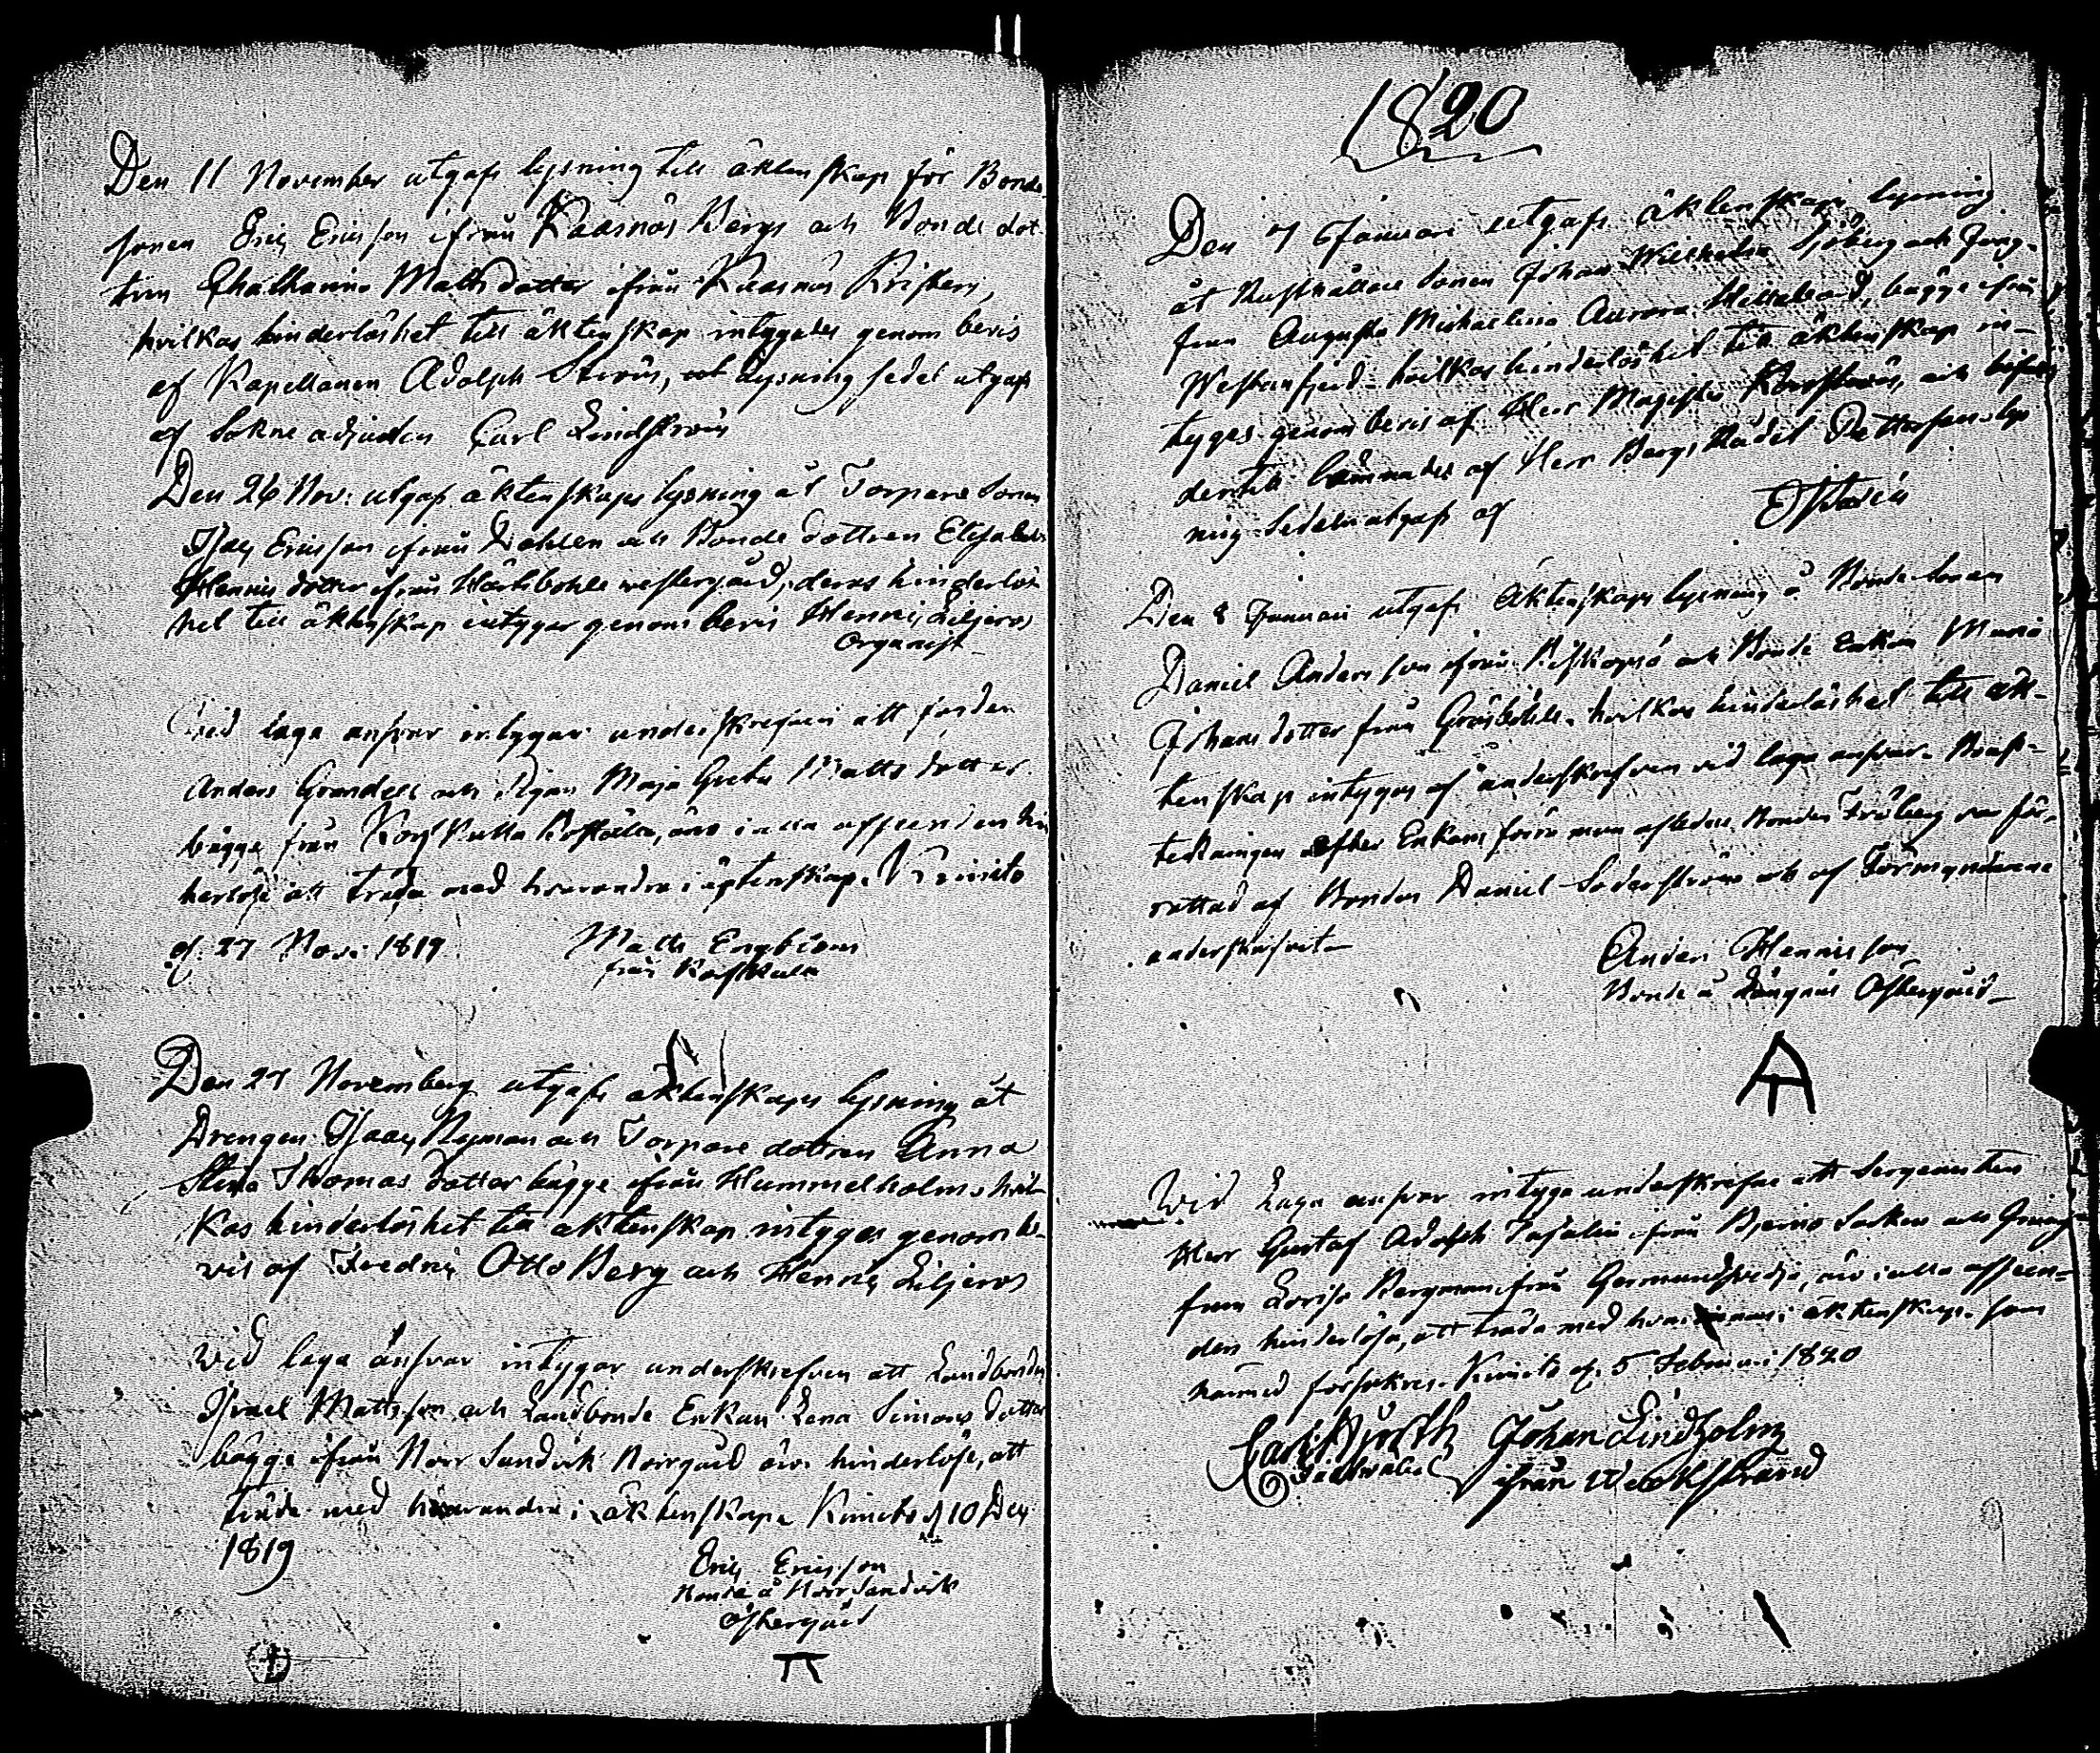 Den 11 November utgafs lysning till äktenskap för Bonde
sonen Eric Ericsson ifrån Kaasnäs Bergs och Bonde dot-
tren Chatharina Mattsdotter ifrån Kaasnäs Kristers,
hvilkas hinderlöshet till äktenskap intygades genom bevis
af Kapellanen Adolph Sirén, lysning sedel utgafs
af Sokne adjuncten Carl Lindström
Den 26 Nov: utgafs äktenskaps lysning åt Torpare Sonen
Isac Ericsson ifrån Dahlen och Bonde dottren Elisabeth
Henrics dotter ifrån westergård, deras hinderlös-
het till äktenskap intygar genom bevis Henric Liljeros
Organist
Wid laga ansvar intygar underskrefven att
Anders Grandell och Pigan Maja Greta Matts dotter
bägge från äro i alla afseenden hin
derlöse att träda med hvarandra i äktenskap. Kimito
d. 27 Nov: 1819. Matts Engblom
från
Den 27 November utgafs äktenskaps lysning åt
Drengen Isaac Nyman och Torpare dottren Anna
Stina Thomas dotter bägge ifrån Hummelholm, hvil-
kas hinderlöshet till äktenskap intygas genom be-
vis af Fredric Otto Berg och Henric Liljeros
Wid laga ansvar intygar underskrefven att Landbonden
Israel Mattsson och Landbonde Enkan Lena Simons dotter
bägge ifrån Norr Sandvik Norrgård äro hinderlöse, att
träda med hvarandra i äktenskap. Kimito d 10 Dec
1819
Eric Ericsson
Bonde å Norr Sandvik
Östergård
1820
Den 7 Januari utgafs äktenskaps lysning
åt Rusthållare Sonen Johan Wilhelm Sjöberg och Jung-
frun Augusta Michaelina Aurora bägge ifrån
Westanfjerd. hvilkas hinderlöshet till äktenskap in-
tyges genom bevis af Herr Magister och
dertill lämnades af Herr Bergs Rådet Petterson. lys
ning Sedeln utgafs af
Den 8 Januari utgafs Äktenskaps lysning å Bonde Sonen
Daniel Andersson ifrån Biskopsö och Bonde Enkan Maria
Johans dotter från Gräsböhle. hvilkas hinderlöshet till äk-
tenskap intygas af underskrefven vid laga ansvar.
teckningen efter Enkans förra man afledne Bonden Fröberg var för-
rättad af Bonden Daniel Söderström och af Förmyndarne
underskrifvit
Anders Henricsson
Bonde å Långnäs Östergård
Wid Laga ansvar intyga underskrefne att Sergeanten
Herr Gustaf Adolph ifrån Bjerno Socken och Jung-
frun Lovisa Bergman från Germundsvedja, äro i alla afseen-
den hinderlösa, att träda med hvarannan i äktenskap. som
härmed försäkras. Kimito d. 5 Februari 1820
Johan Lindholm
ifrån Wreckstrand